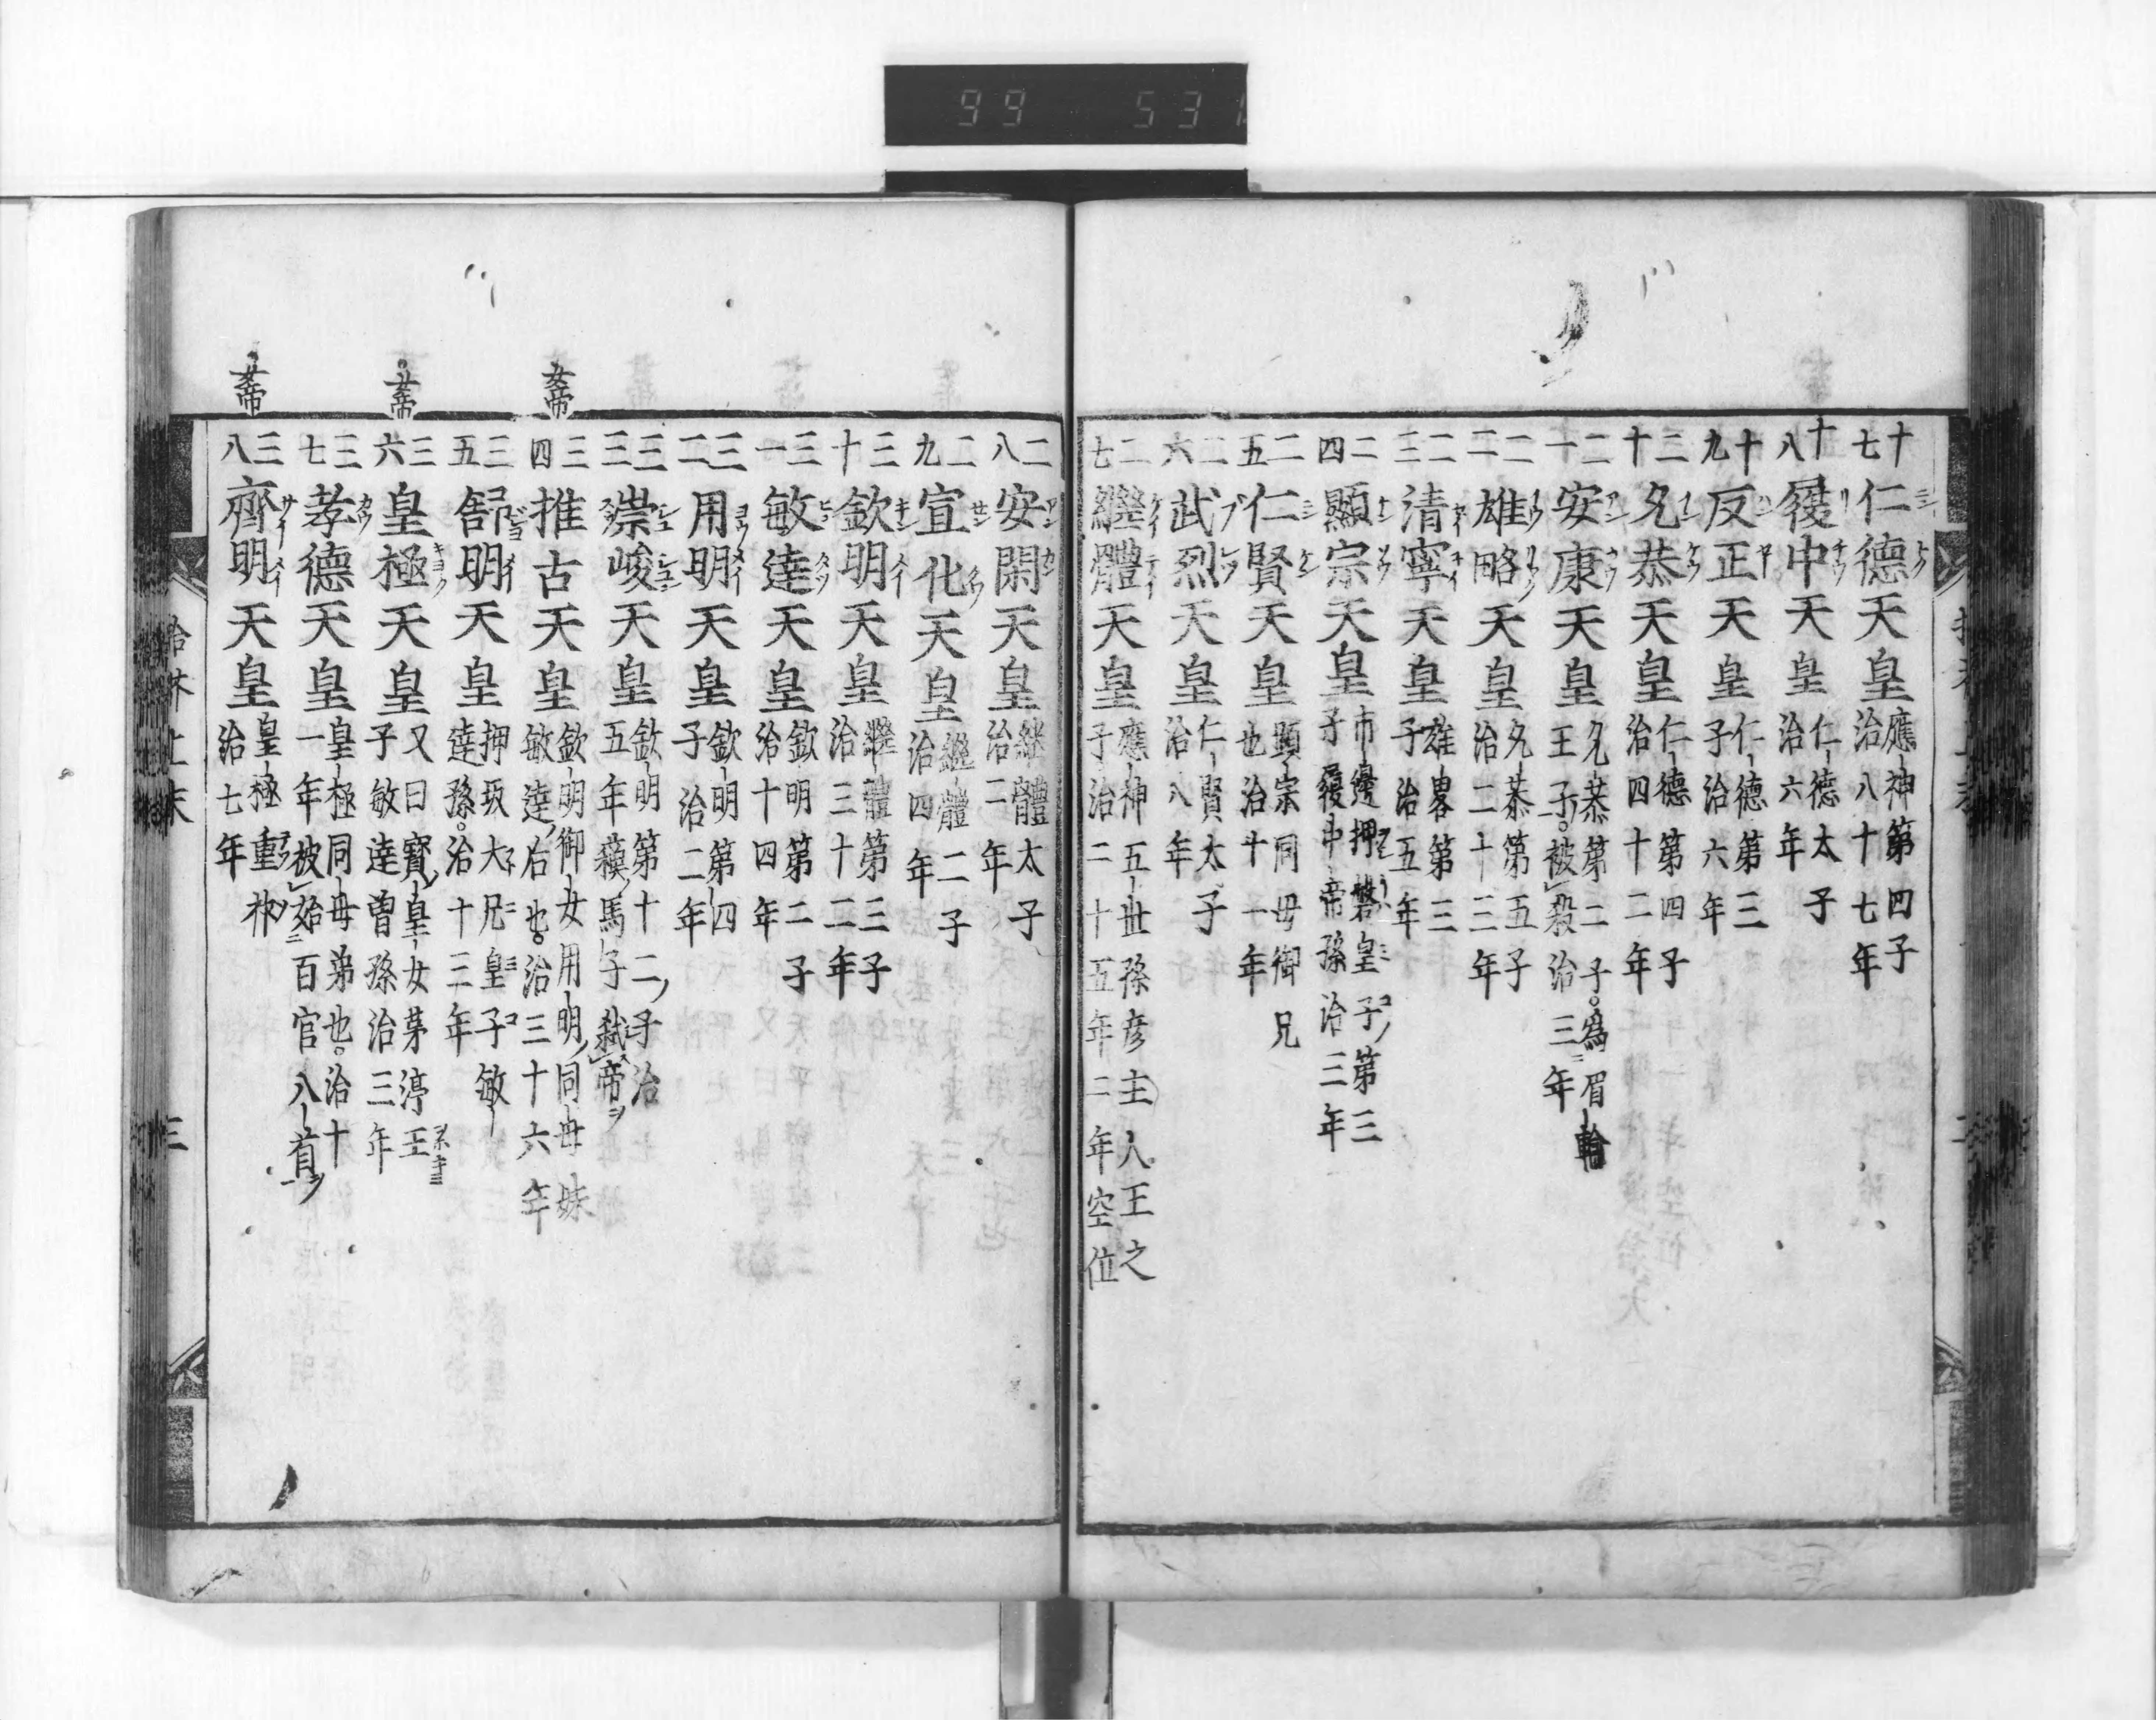 99 531
十七 仁德天皇 應神第四子治八十七年
十八 履中天皇 仁德太子治六年
十九 反正天皇 仁德第三子治六年
二十 允恭天皇 仁德第四子治四十二年
二十一 安康天皇 允恭第二子為眉輪王子被殺治三年
二二 雄略天皇 允恭第五子治二十三年
二三 清寧天皇 雄畧第三子治五年
二四 顯宗天皇 市邊押磐皇子第三子履中帝孫治三年
二五 仁賢天皇 顯宗同母御兄也治十一年
二六 武烈天皇 仁賢太子治八年
二七 繼體天皇 應神五世孫彦主人王之子治二十五年二年空位
二八 安閑天皇 繼體太子治二年
二九 宣化天皇 繼體二子治四年
三十 欽明天皇 繼體第三子治三十二年
三一 敏達天皇 欽明第二子治十四年
三二 用明天皇 欽明第四子治二年
三三 崇峻天皇 欽明第十二子治五年蘓馬子弑帝
女帝
三四 推古天皇 欽明御女用明同母妹敏達后也治三十六年
三五 舒明天皇 押坂大兄皇子敏達孫治十三年
女帝
三六 皇極天皇 又曰寳皇女茅渟王子敏達曽孫治三年
三七 孝德天皇 皇極同母弟也治十一年被始百官八省
女帝
三八 齊明天皇 皇極重祚治七年
三